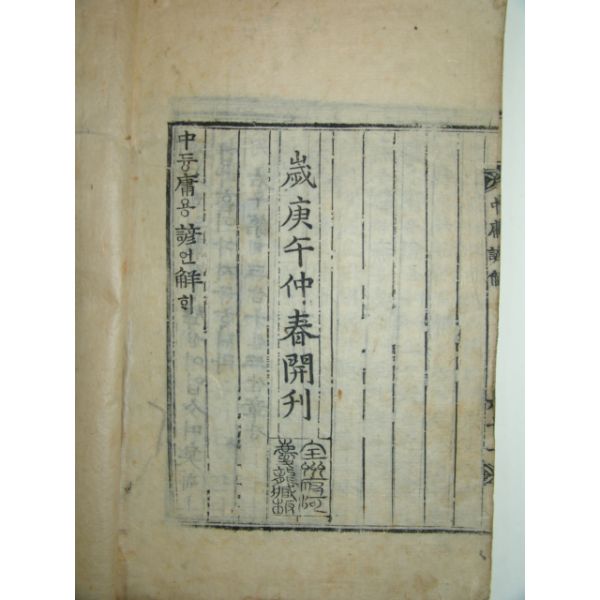 中庸諺解
歲庚午仲春開刊
全州府河
慶龍藏板
中듕庸용諺언解ᄒᆡ